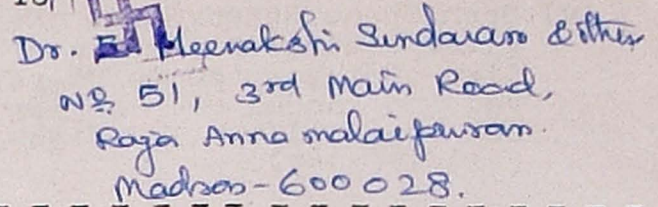 Dr. Meenakshi Sundaram & other
No 51, 3rd Main Road,
Raja Annamalaipuram.
Madras-600028.